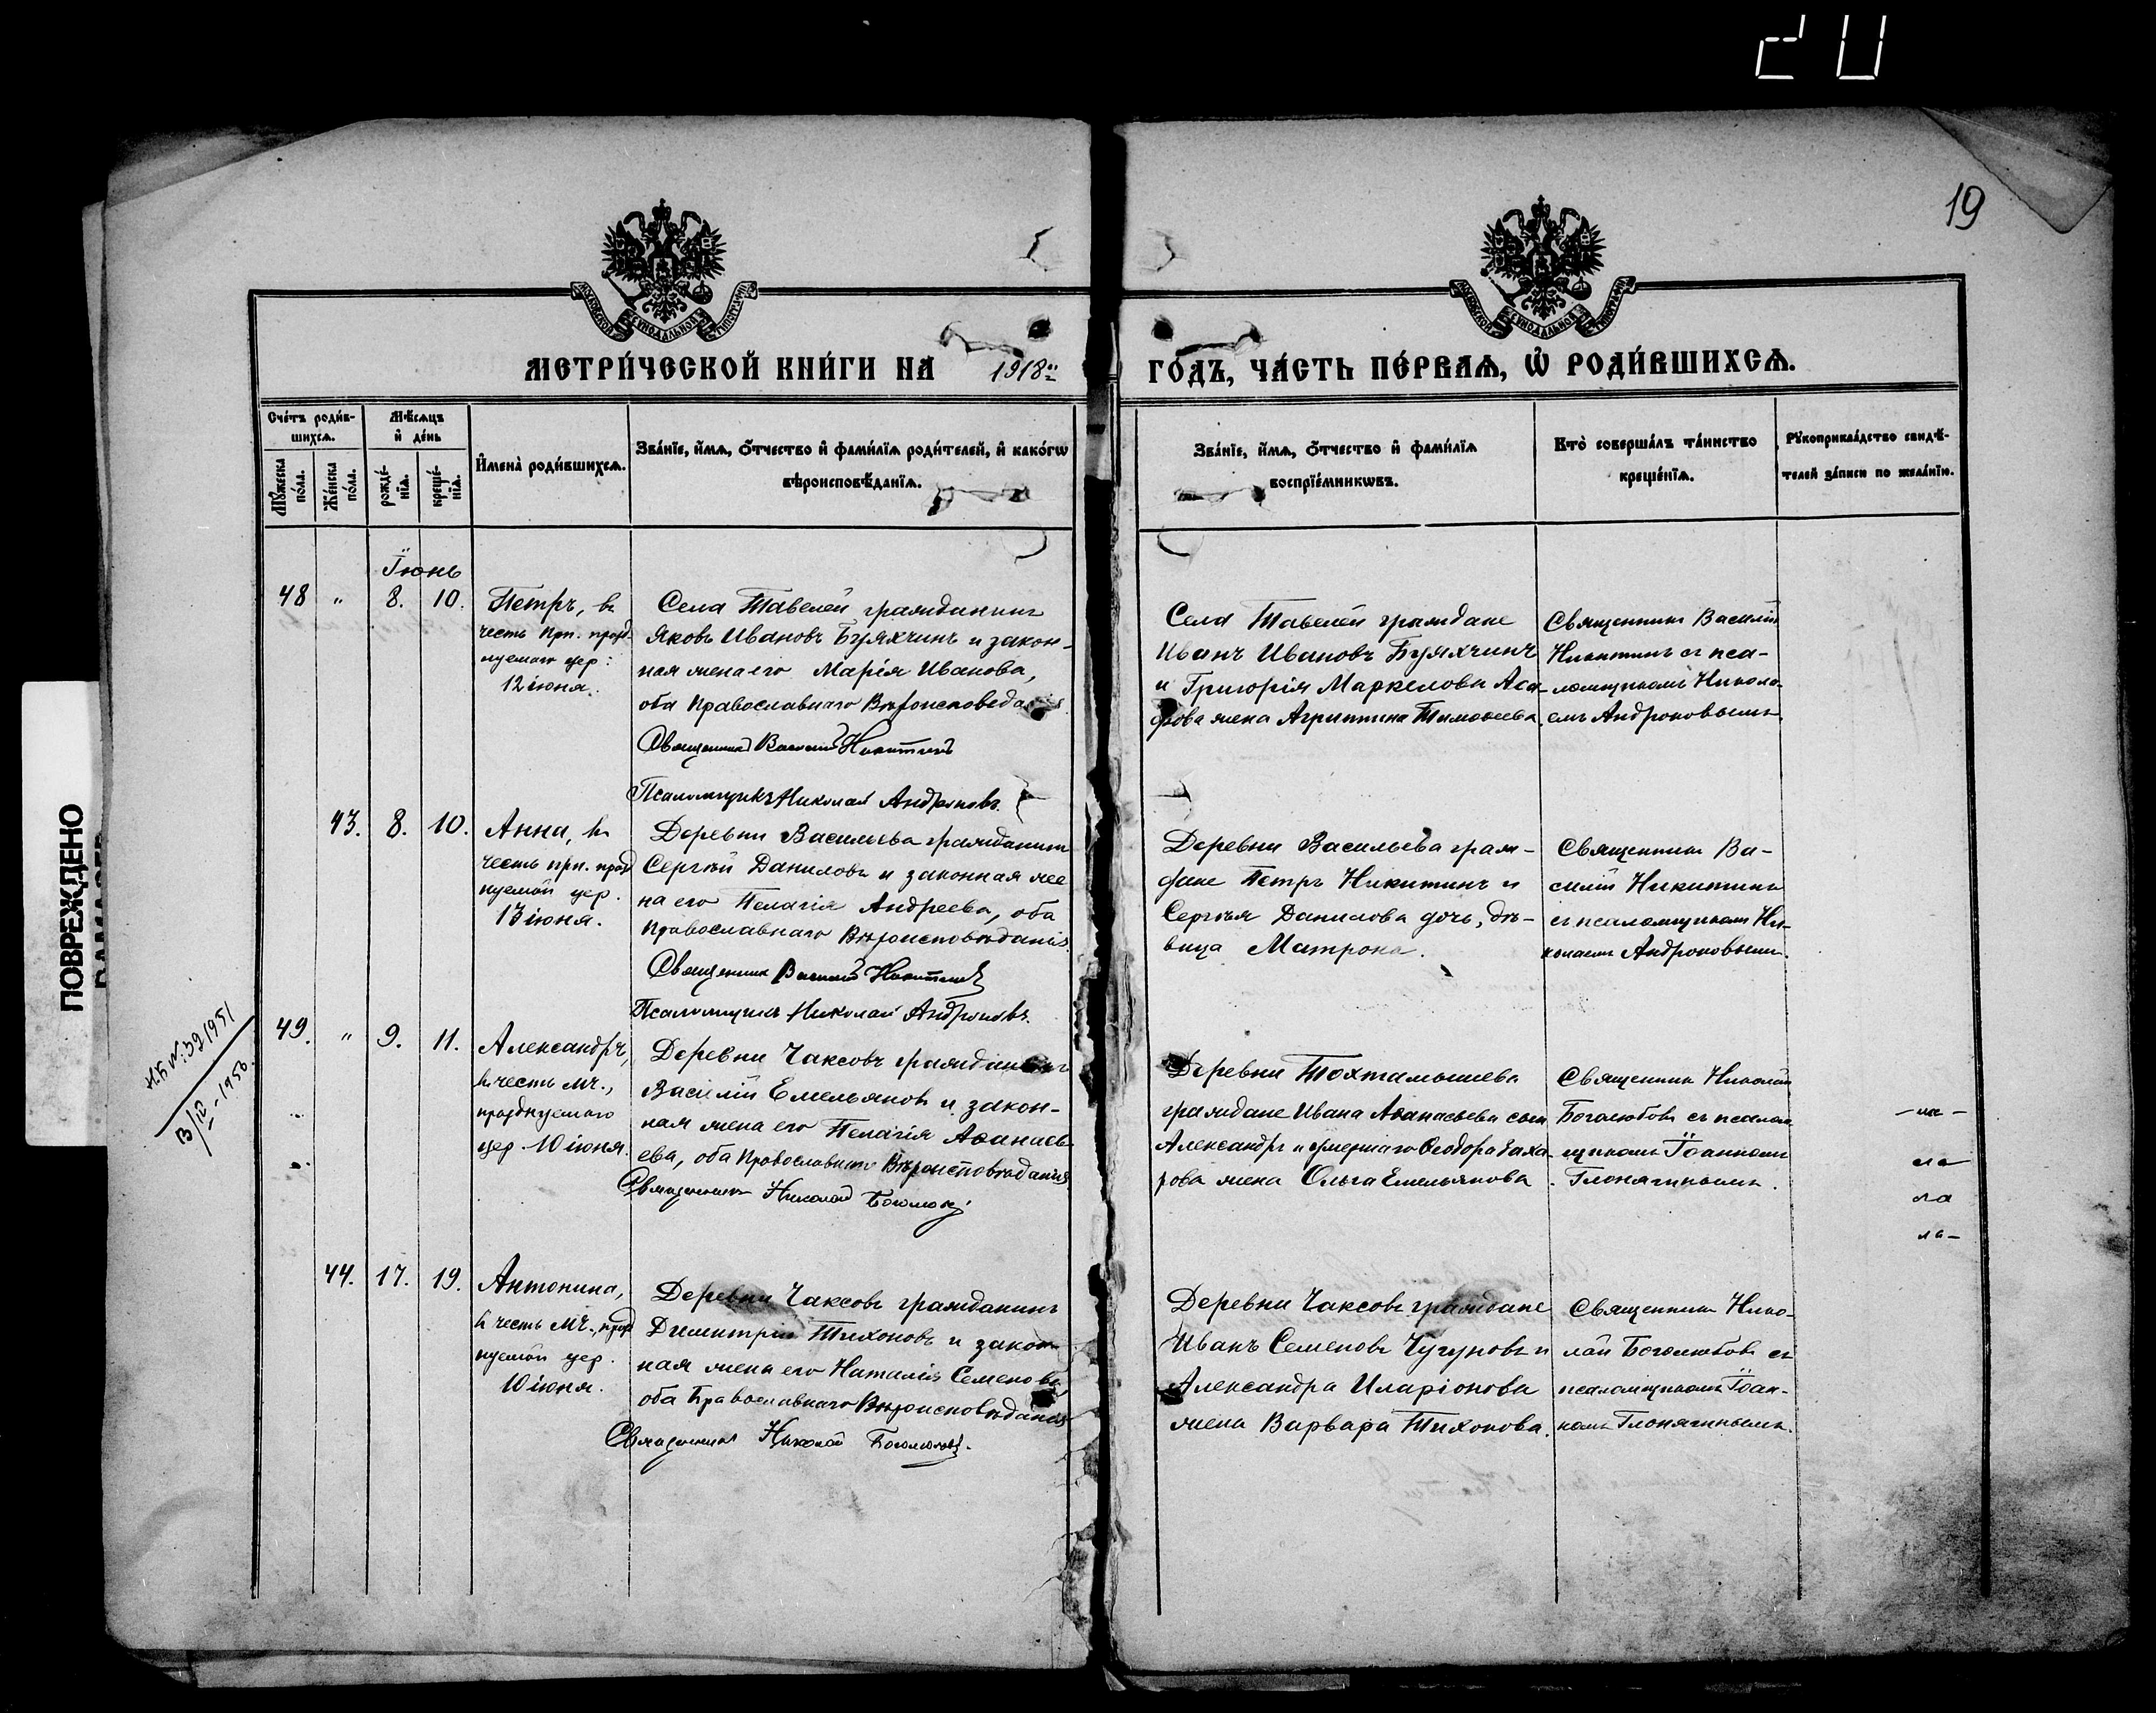 20
19
МЕТРИ́ЧЕСКОЙ КНИ́ГИ НА 1918й ГО́ДЪ, ЧА́СТЬ ПЕ́РВАѦ, Ѽ РОДИ́ВШИХСѦ.
Сче́тъ роди́в-
шихсѧ.
Мѣ́сѧцъ
и҆ де́нь
Мꙋ́жеска
по́ла.
Же́нска
по́ла.
рожде́-
нїѧ.
креще́-
нїѧ.
И҆мена̀ роди́вшихсѧ.
Зва́нїе, и҆́мѧ, ѻ҆́тчество и҆ фами́лїѧ роди́телей, и҆ како́гѡ
вѣроисповѣ́данїѧ.
Зва́нїе, и҆́мѧ, ѻ҆́тчество и҆ фами́лїѧ
воспрїе́мникѡвъ.
Кто̀ соверша́лъ та́инство
креще́нїѧ.
Рꙋкоприкла́дство свидѣ́-
телей за́писи по жела́нїю.
Іюнь
48 " 8. 10.
Петръ, въ
честь прп. празд-
нуемаго цер:
12 іюня.
Села Тавелей гражданинъ
Яковъ Ивановъ Буяхчинъ и закон-
ная жена его Марія Иванова,
оба Православнаго Вѣроисповеданія.
Священникъ Василій Никитинъ
Псаломщикъ Николай Андроновъ.
Села Тавелей граждане
Иванъ Ивановъ Буяхчинъ
и Григорія Маркелова Аса-
фова жена Агриппина Тимоѳеева.
Священникъ Василій
Никитинъ съ пса-
ломщикомъ Никола-
емъ Андроновымъ.
43. 8. 10.
Анна, въ
честь прп. празд
нуемой цер.
13 іюня.
Деревни Васильева гражданинъ
Сергѣй Даниловъ и законная же
на его Пелагія Андреева, оба
Православнаго Вѣроисповѣданія.
Священникъ Василій Никитинъ
Псаломщикъ Николай Андроновъ.
Деревни Васильева граж-
дане Петръ Никитинъ и
Сергѣя Данилова дочь, дѣ-
вица Матрона.
Священникъ Ва-
силій Никитинъ
съ псаломщикомъ Ни-
колаемъ Андроновымъ.
Н.Б №: 39 1951
В/IV-1956.
49. " 9. 11.
Александръ,
въ честь мч.,
празднуемаго
цер 10 іюня.
Деревни Чаксовъ гражданинъ
Василій Емельяновъ и закон-
ная жена его Пелагія Аѳанась-
ева, оба Православнаго Вѣроисповѣданія.
Священникъ Николай Боголюб
Деревни Тохтамышева
граждане Ивана Аѳанасьева сынъ
Александръ и умершаго Ѳеодора Заха-
рова жена Ольга Емельянова.
Священникъ Николай
Боголюбовъ съ псалом-
щикомъ Іоанномъ
Глонягинымъ.
44. 17. 19.
Антонина,
въ честь мч., празд
нуемой цер.
10 іюня.
Деревни Чаксовъ гражданинъ
Димитрій Тихоновъ и закон-
ная жена его Наталія Семенова,
оба Православнаго Вѣроисповѣданія
Священникъ Николай Боголюбовъ.
Деревни Чаксовъ граждане
Иванъ Семеновъ Чугуновъ и
Александра Иларіонова
жена Варвара Тихонова.
Священникъ Нико-
лай Боголюбовъ съ
псаломщикомъ Іоан-
номъ Глонягинымъ.
ПОВРЕЖДЕНО